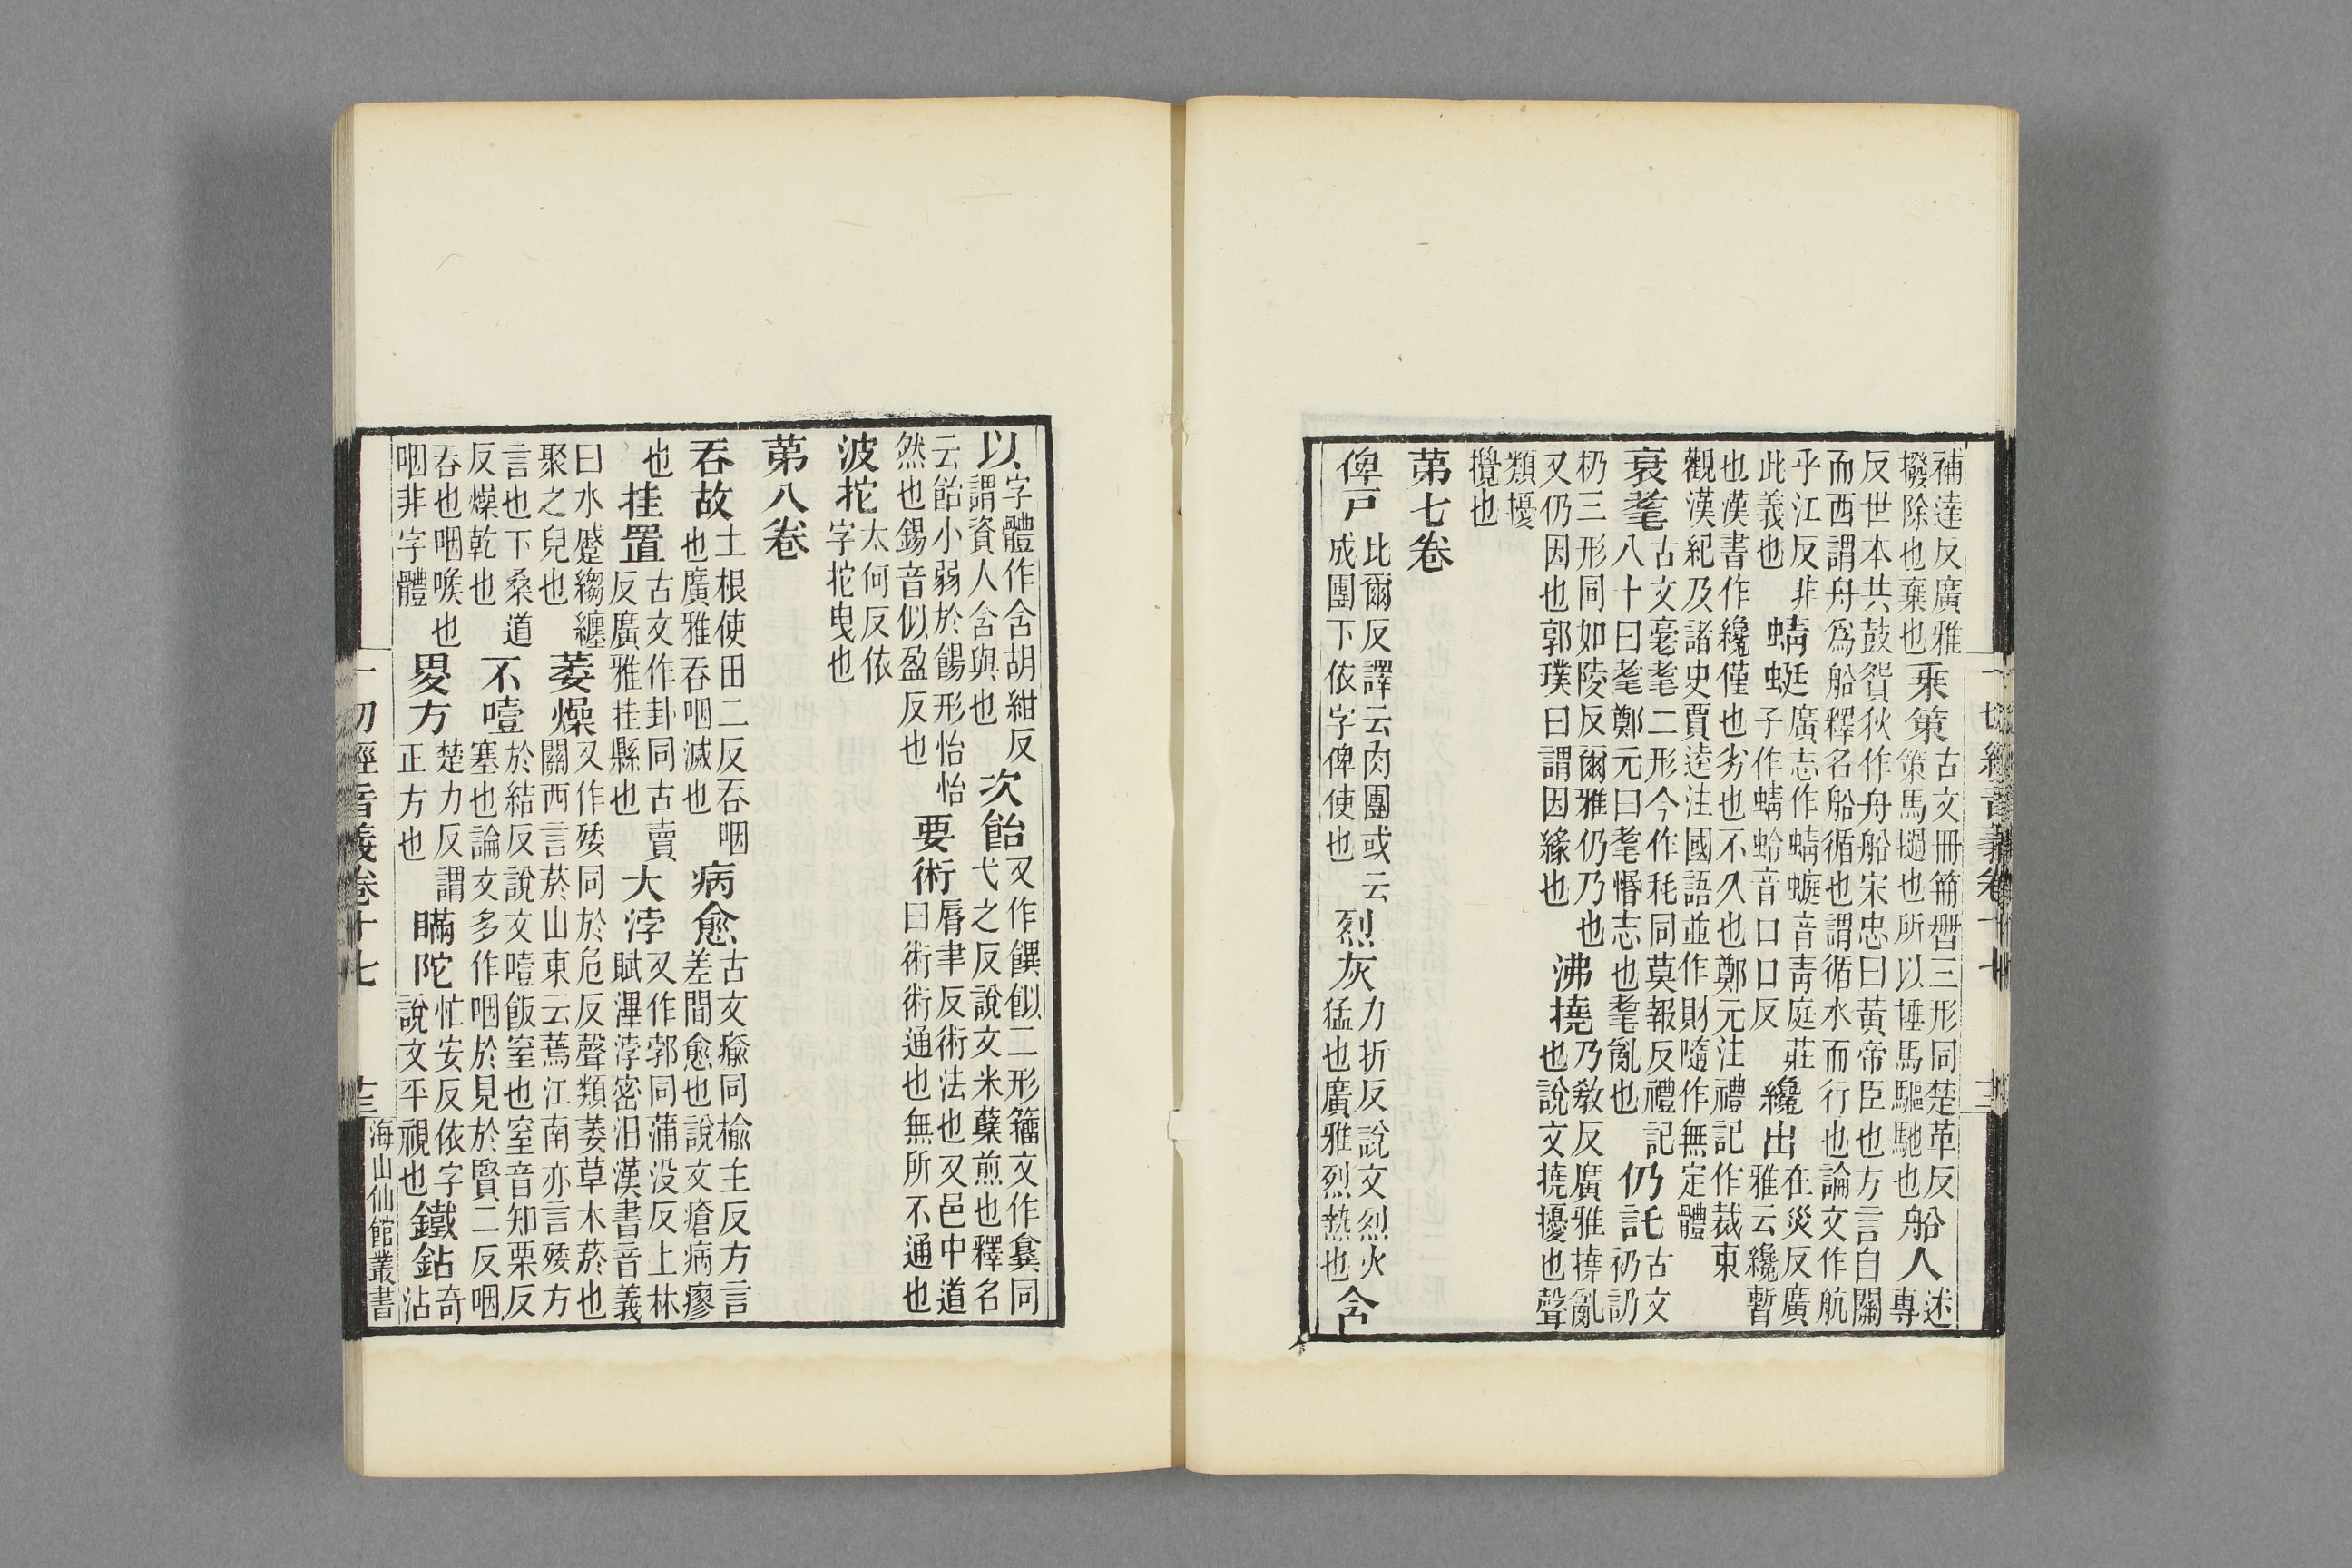 一切經音義卷十七 十二
補達反廣雅撥除也棄也乘策古文冊箱朁三形同楚革反策馬撾也所以捶馬驅馳也船人述專
反世本共鼓貨狄作舟船宋忠曰黃帝臣也方言自關而西謂舟爲船釋名船循也謂循水而行也論文作航
乎江反非此義也蜻蜓廣志作蜻蝏音靑庭莊子作蜻蛉音口口反纔出在災反廣雅云纔暫
也漢書作纔僅也劣也不久也鄭元注禮記作裁東觀漢紀及諸史賈逵注國語並作財隨作無定體
衰耄古文耄二形今作秏同莫報反禮記八十曰耄鄭元曰耄惛志也耄亂也仍託古文礽訒
扔三形同如陵反爾雅仍乃也又仍因也郭璞曰謂因緣也沸撓乃敎反廣雅撓亂也說文撓擾也聲
類擾攪也
第七卷
俾尸比爾反譯云肉團或云成團下依字俾使也烈灰力折反說文烈火猛也廣雅烈熱也含
以字體作含胡紺反謂資人含與也次飴又作飤二形籀文作同弋之反說文米糵煎也釋名
云飴小弱於餳形怡怡然也餳音似盈反也要術脣聿反術法也又邑中道曰術術通也無所不通也
波拕太何反依字拕曳也
第八卷
吞故土根使田二反吞咽也廣雅吞咽滅也病愈古文瘉同榆主反方言差間愈也說文瘡病瘳
也挂罝古文作卦同古賣反廣雅挂縣也大浡又作郣同蒲沒反上林賦滭浡密汨漢書音義
曰水蹙縐纏聚之皃也萎燥又作矮同於危反聲類萎草木菸也關西言菸山東云蔫江南亦言矮方
言也下桑道反燥乾也不噎於結反說文噎飯窒也窒音知栗反塞也論文多作咽於見於賢二反咽
吞也咽喉也咽非字體畟方楚力反謂正方也瞞陀忙安反依字說文平視也鐵鉆奇沾
一切經音義卷十七 十三 海山仙館叢書